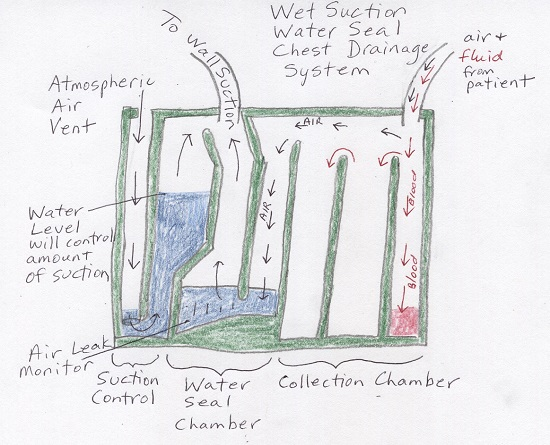 Wet Suction
Water Seal
Chest Drainage
System
To Wall Suction
air +
fluid
from
patient
Atmospheric
Air
Vent
AIR
AIR
Blood
Blood
Water
Level
will control
amount
of suction
Air Leak
monitor
Suction
Control
Water
Seal
Chamber
Collection Chamber